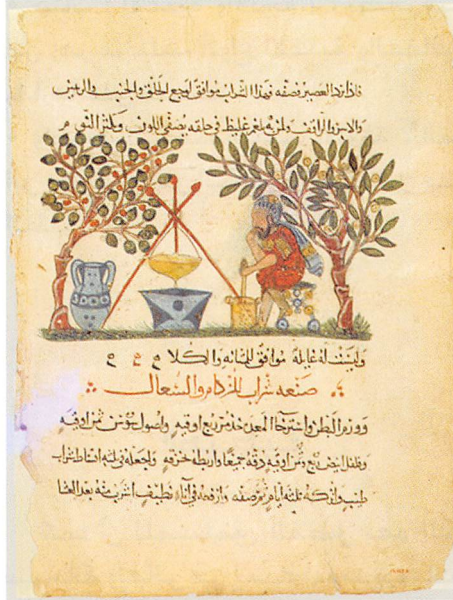 فاذا برد العصير وصفه فهذا الشراب موافق لوجع الحلق والجنب
ولمن به بلغم غليظ في حلقه يصفي اللون ويكثر النوم
وليست له غايلة موافق للمثانة والكلا
صنعة شراب للزكام والسعال
وورم البطن واسترخا المعدة خذ مر ربع اوقيه واصول سوسن ثمن اوقيه
وفلفل ابيض ربع وثمن اوقيه دقه جميعا واربطه خرقه واجعله في اقساط شراب
طيب واتركه ثلثة ايام ثم صفه وارفعه في اناء نظيف اشرب منه بعد العشا